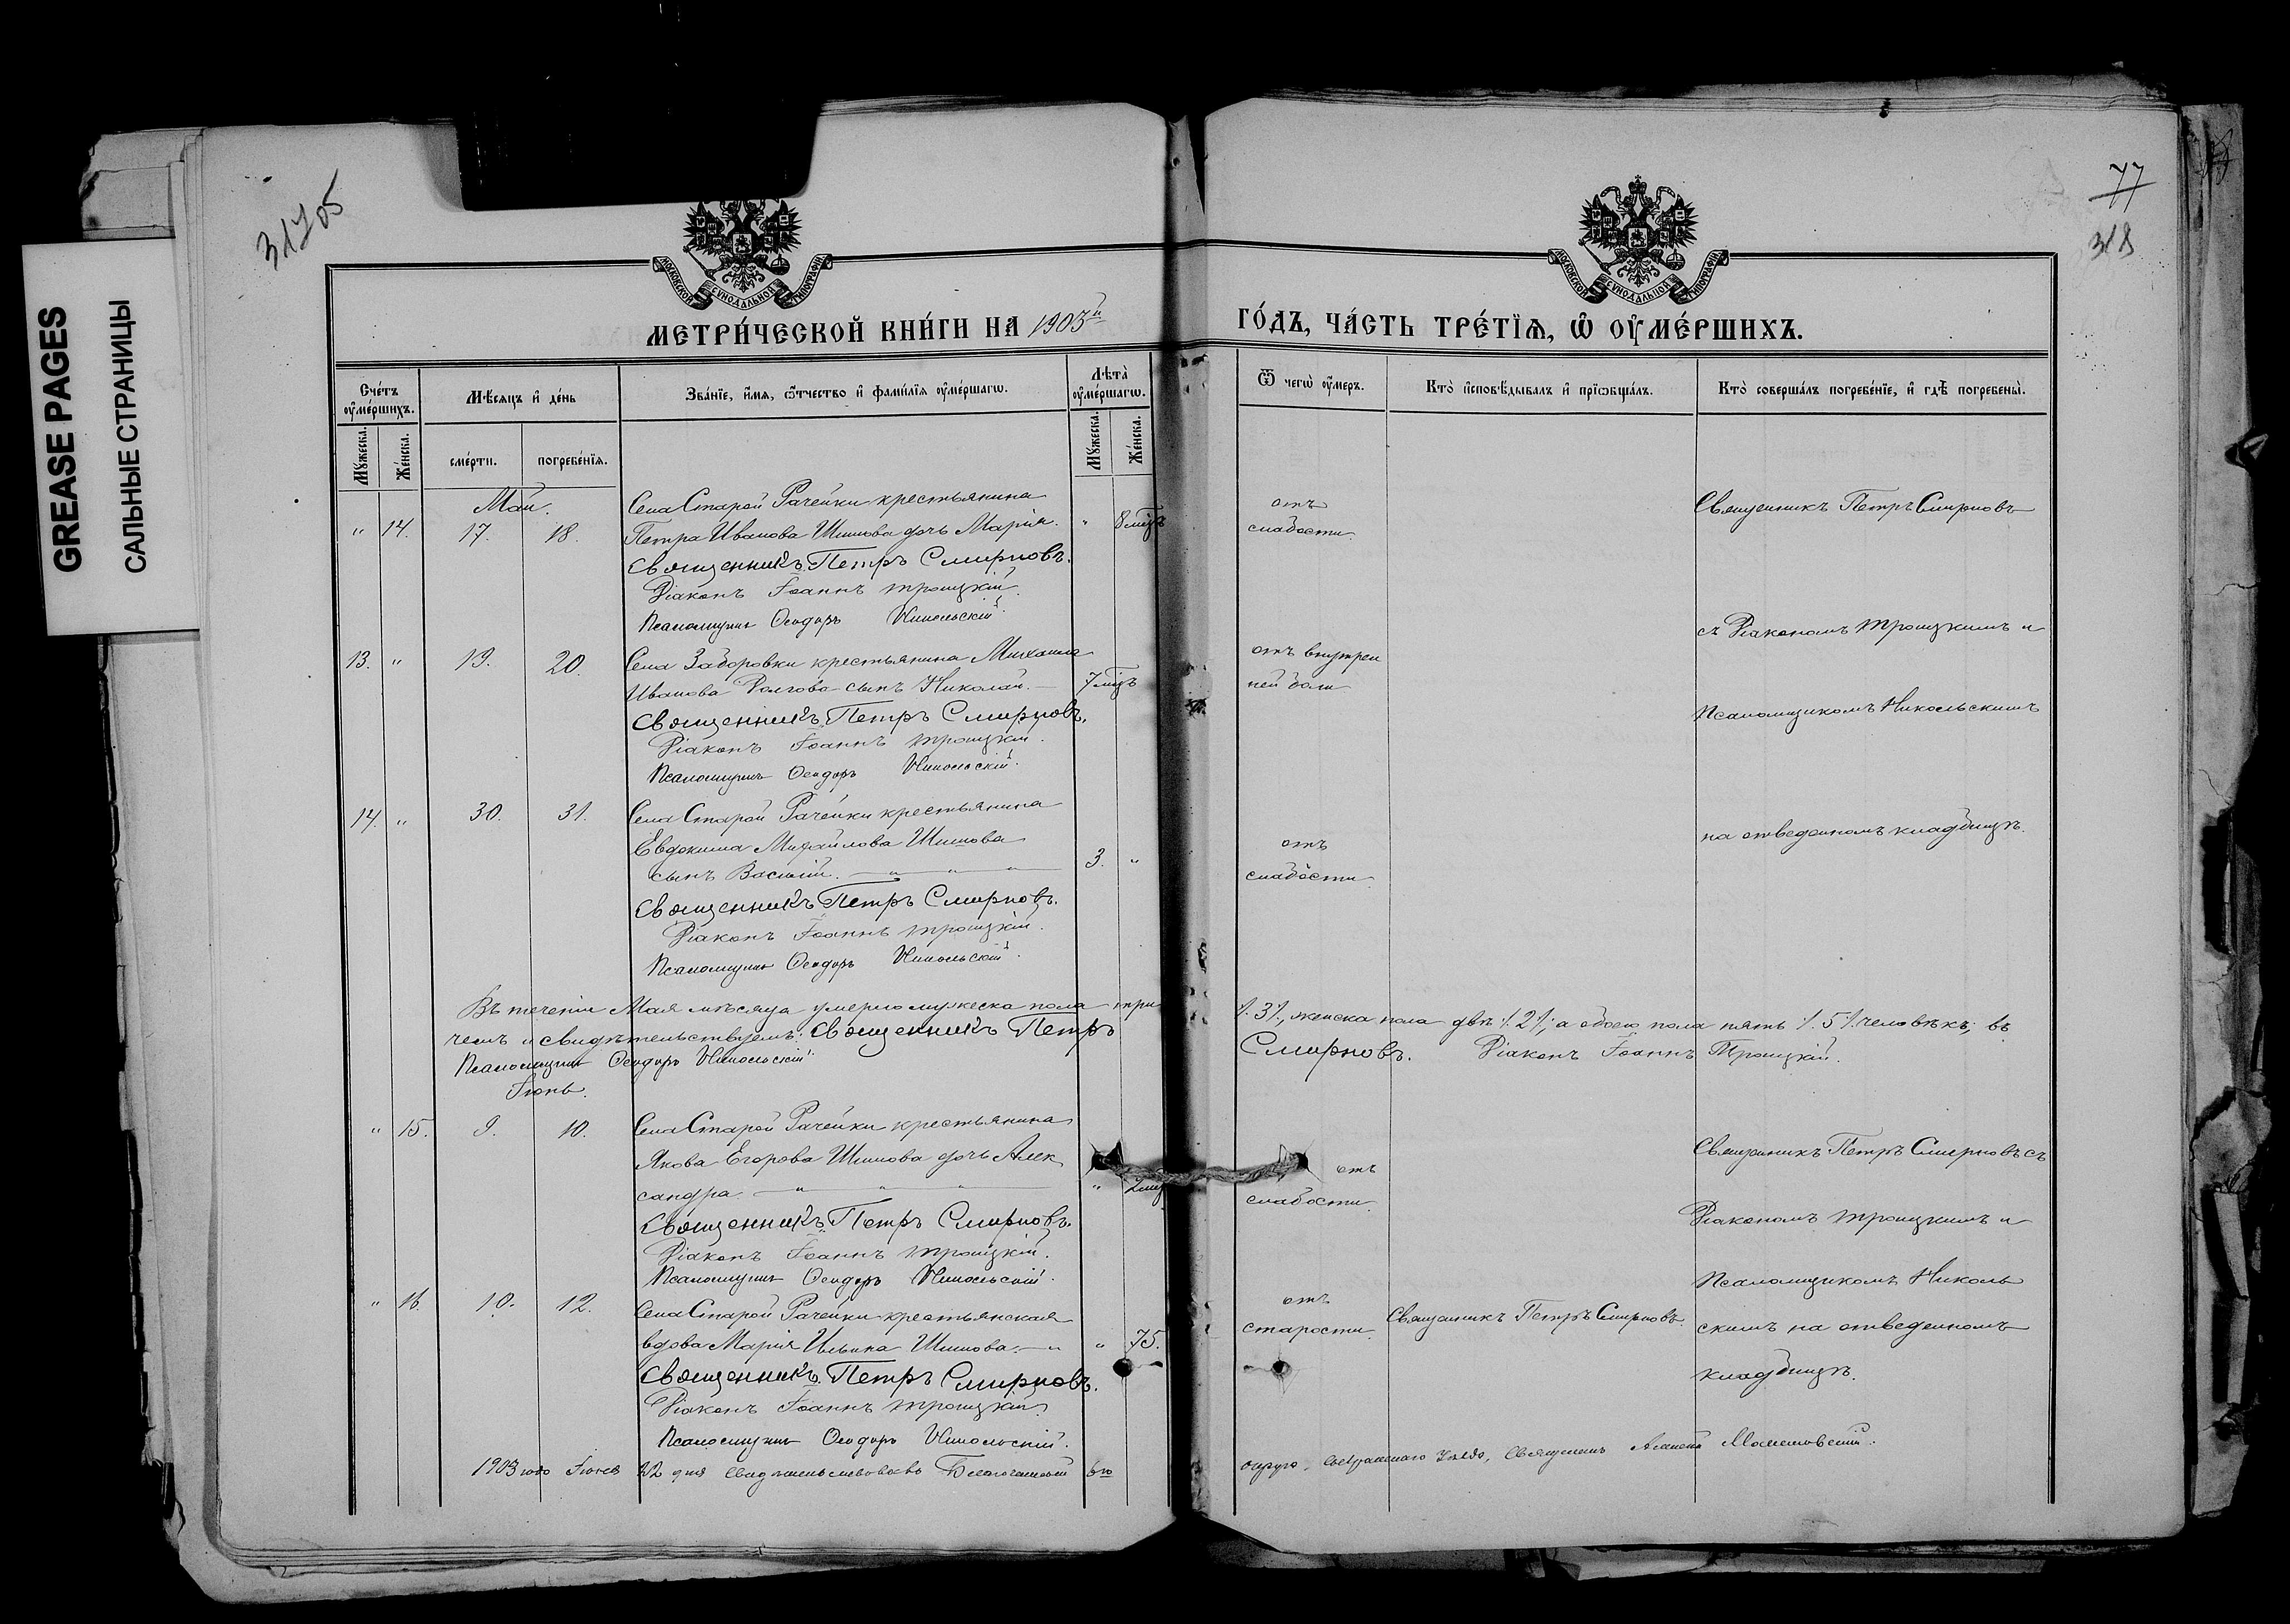 GREASE PAGES
САЛЬНЫЕ СТРАНИЦЫ
31705
77
318
МОСКОВСКОЙ СѴНОДАЛЬНОЙ ТИПОГРАФІИ
МОСКОВСКОЙ СѴНОДАЛЬНОЙ ТИПОГРАФІИ
МЕТРИ́ЧЕСКОЙ КНИ́ГИ НА 1903й
ГО́ДЪ, ЧА́СТЬ ТРЕ́ТЇѦ, Ѡ ОУ҆МЕ́РШИХЪ.
Сче́тъ оу҆ме́ршихъ.
Мѣ́сяцъ и҆ де́нь
Зва́нїе, и҆́мя, ѻ҆́тчество и҆ фами́лїя оу҆ме́ршагѡ.
Лѣ́та оу҆ме́ршагѡ.
Ѿ чегѡ̀ оу҆́меръ.
Кто̀ и҆сповѣ́дывалъ и҆ прїѡбща́лъ.
Кто̀ соверша́лъ погребе́нїе, и҆ гдѣ̀ погребены̀.
Мꙋ́жеска.
Же́нска.
сме́рти.
погребе́нїя.
Мꙋ́жеска.
Же́нска.
Май.
Села Старой Рачейки крестьянина
" 14. 17. 18. Петра Иванова Шишова дочь Марія. " 8 мцъ
Священникъ Петръ Смирновъ.
Діаконъ Іоаннъ Троицкій.
Псаломщикъ Ѳеодоръ Никольскій.
отъ
слабости.
Священникъ Петръ Смирновъ
съ Діакономъ Троицкимъ и
Псаломщикомъ Никольскимъ
на отведенномъ кладбищѣ.
13. " 19. 20. Села Заборовки крестьянина Михаила
Иванова Долгова сынъ Николай. 7 мцъ
Священникъ Петръ Смирновъ.
Діаконъ Іоаннъ Троицкій.
Псаломщикъ Ѳеодоръ Никольскій.
отъ внутрен
ней боли
14. " 30. 31. Села Старой Рачейки крестьянина
Евдокима Михайлова Шишова
сынъ Василій. " " " 3. "
Священникъ Петръ Смирновъ.
Діаконъ Іоаннъ Троицкій.
Псаломщикъ Ѳеодоръ Никольскій.
отъ
слабости
Въ теченіи Мая мѣсяца умерло мужеска пола три ⁒3⁒, женска пола двѣ ⁒2⁒; а обоего пола пять ⁒5⁒ человѣкъ; въ
чемъ и свидѣтельствуемъ: Священникъ Петръ Смирновъ. Діаконъ Іоаннъ Троицкій.
Псаломщикъ Ѳеодоръ Никольскій.
Іюнь.
" 15. 9. 10. Села Старой Рачейки крестьянина
Якова Егорова Шишова дочь Алек
сандра. " " " " 2 мц
Священникъ Петръ Смирновъ.
Діаконъ Іоаннъ Троицкій.
Псаломщикъ Ѳеодоръ Никольскій.
отъ
слабости.
Священникъ Петръ Смирновъ съ
Діакономъ Троицкимъ и
Псаломщикомъ Николь
скимъ на отведенномъ
кладбищѣ.
" 16. 10. 12. Села Старой Рачейки крестьянская
вдова Марія Ильина Шишова. " " 75.
Священникъ Петръ Смирновъ.
Діаконъ Іоаннъ Троицкій.
Псаломщикъ Ѳеодоръ Никольскій.
отъ
старости.
Священникъ Петръ Смирновъ
1903 года Іюля 22 дня свидѣтельствовавъ Благочинный 6го округа, Сызранскаго уѣзда, Священникъ